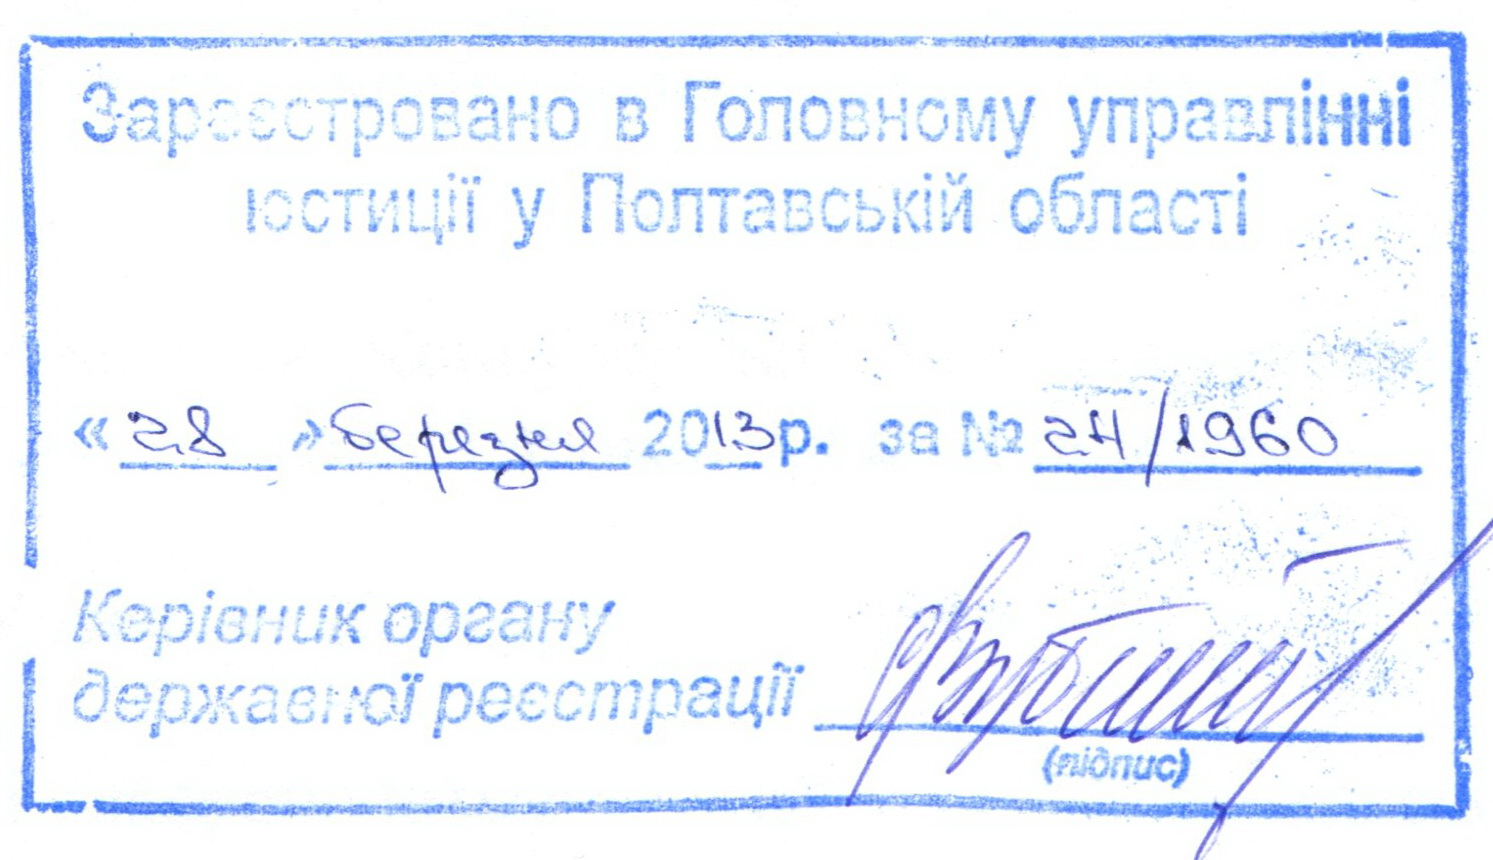 Зареєстровано в Головному управлінні
юстиції у Полтавській області
«28» березня 2013р. за № 24/1960
Керівник органу
державної реєстрації
(підпис)